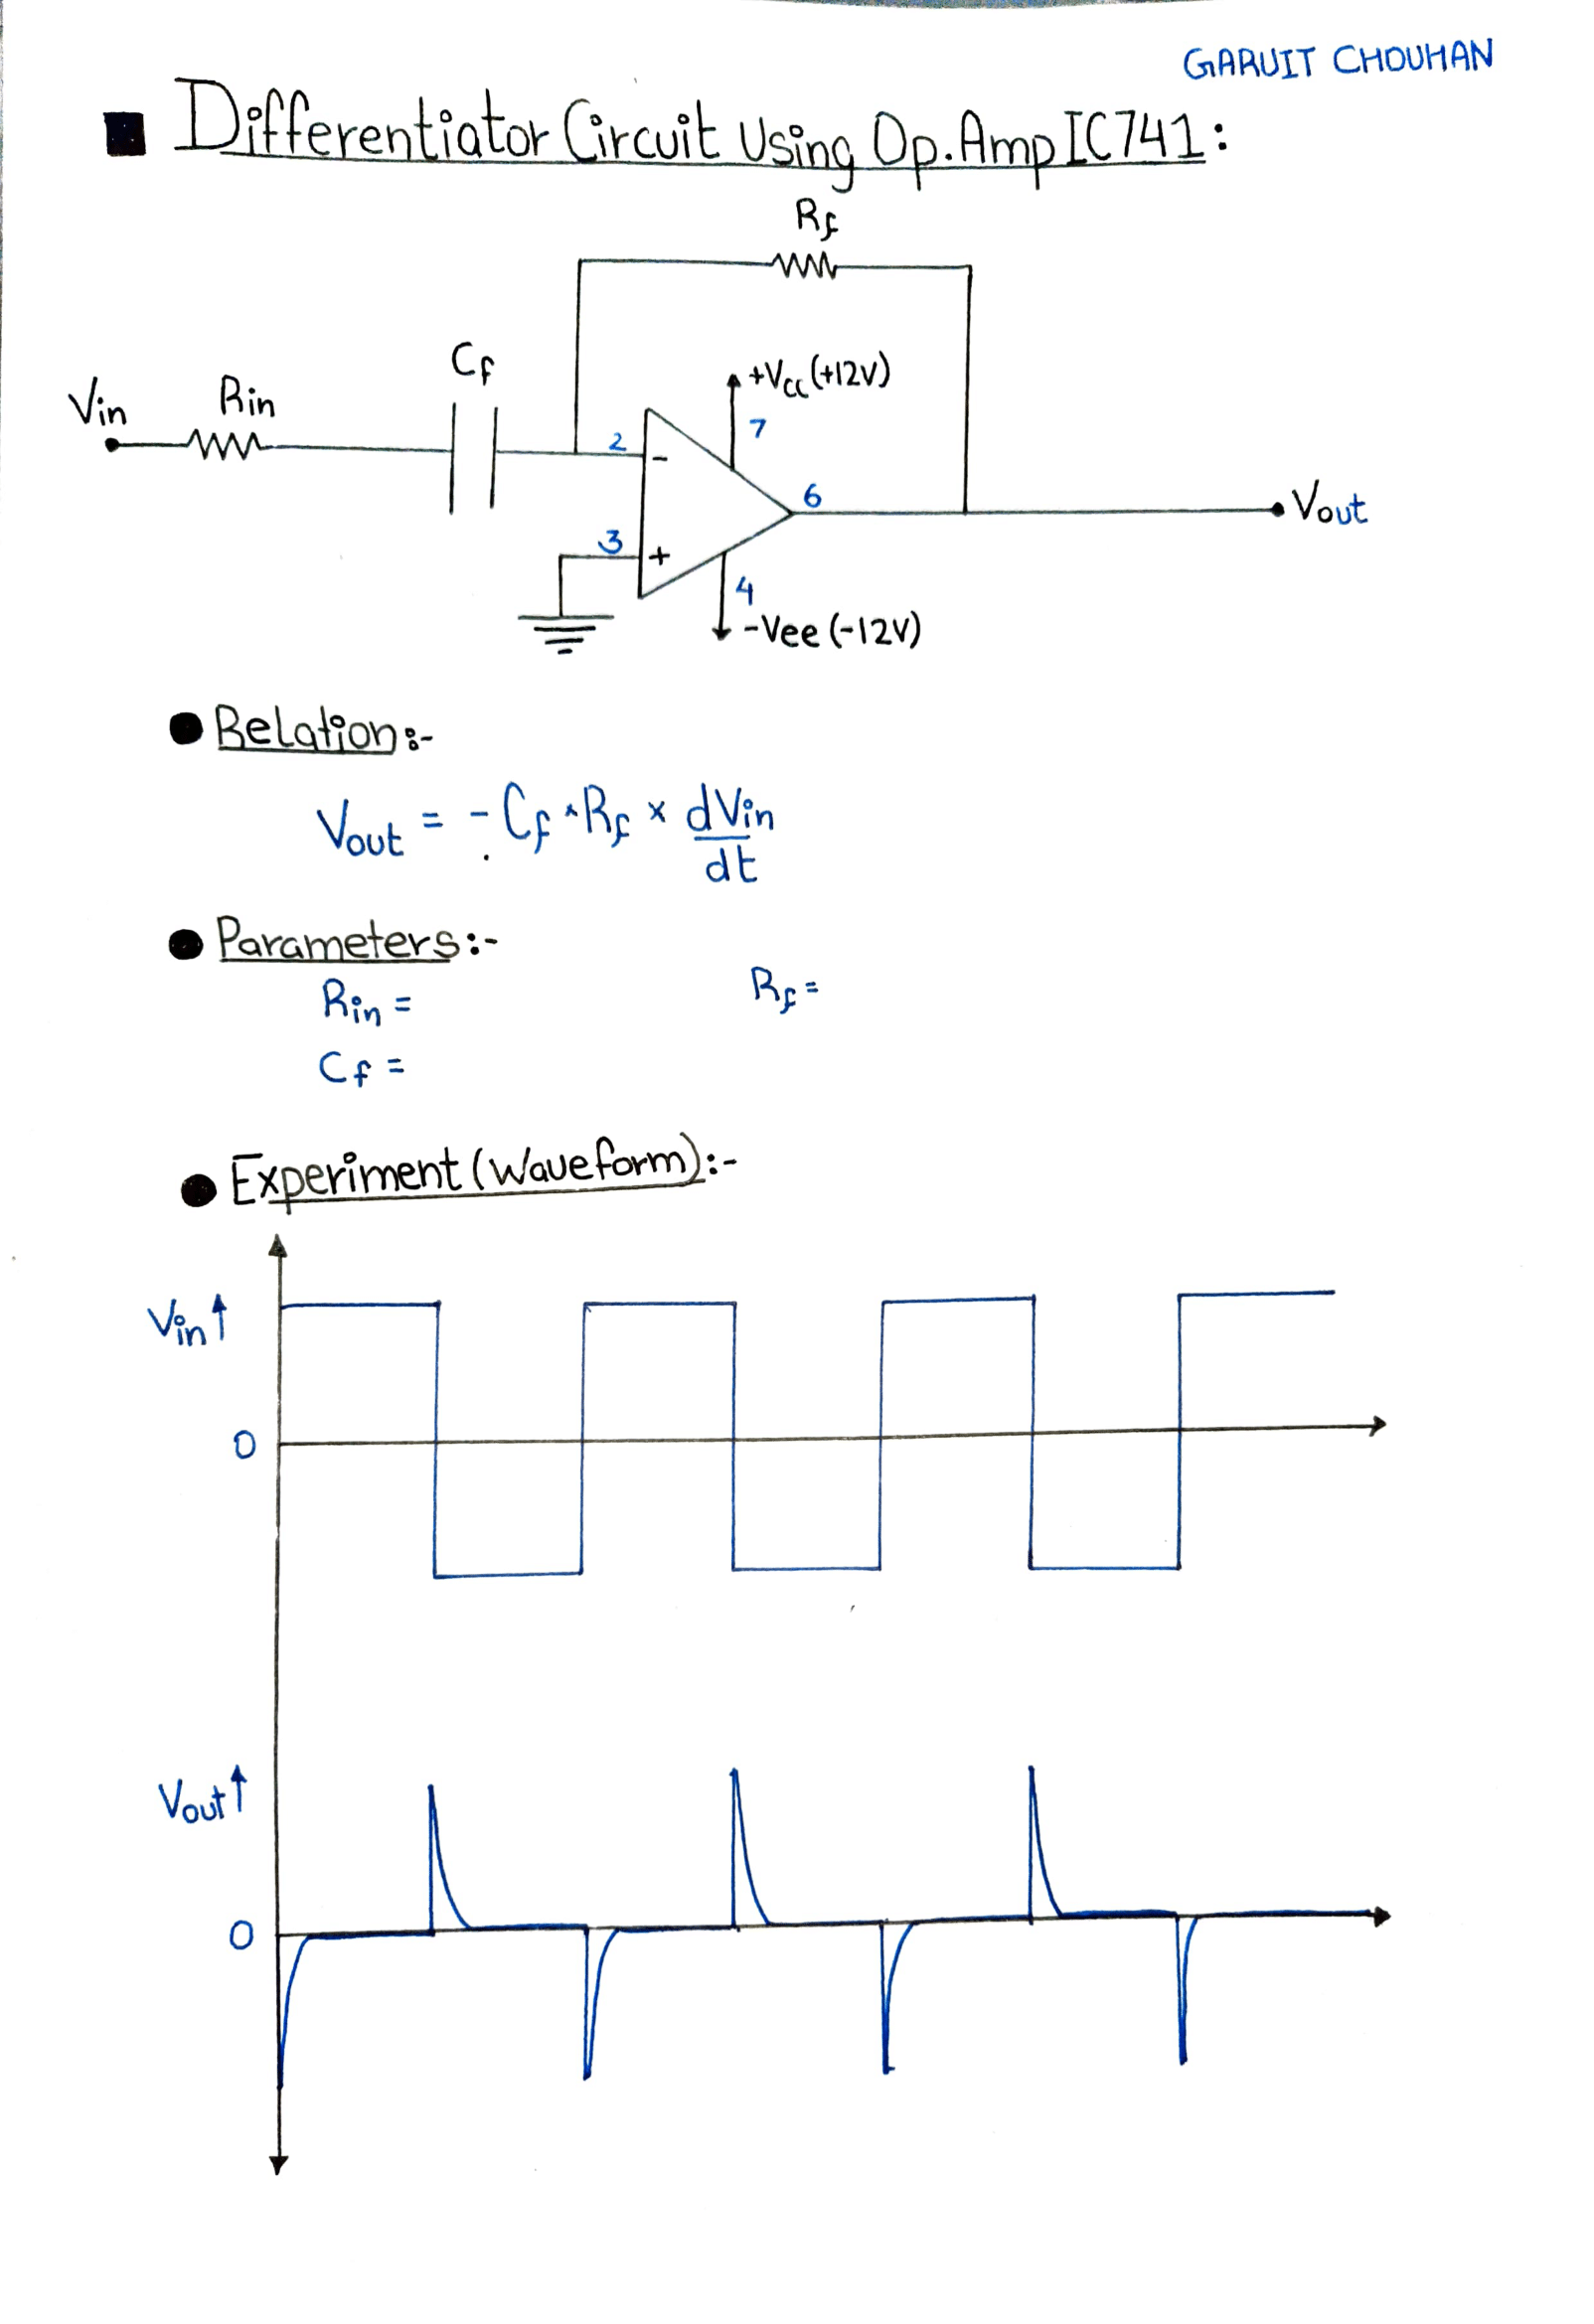 GARUIT CHOUHAN
Differentiator Circuit Using Op.Amp IC741:
Rf
Cf
+Vcc (+12V)
Vin
Rin
7
2
-
6
Vout
3
+
4
-Vee (-12V)
Relation:-
Vout = - Cf × Rf × dVin/dt
Parameters:-
Rin = Rf =
Cf =
Experiment (Waveform):-
Vin↑
0
Vout↑
0